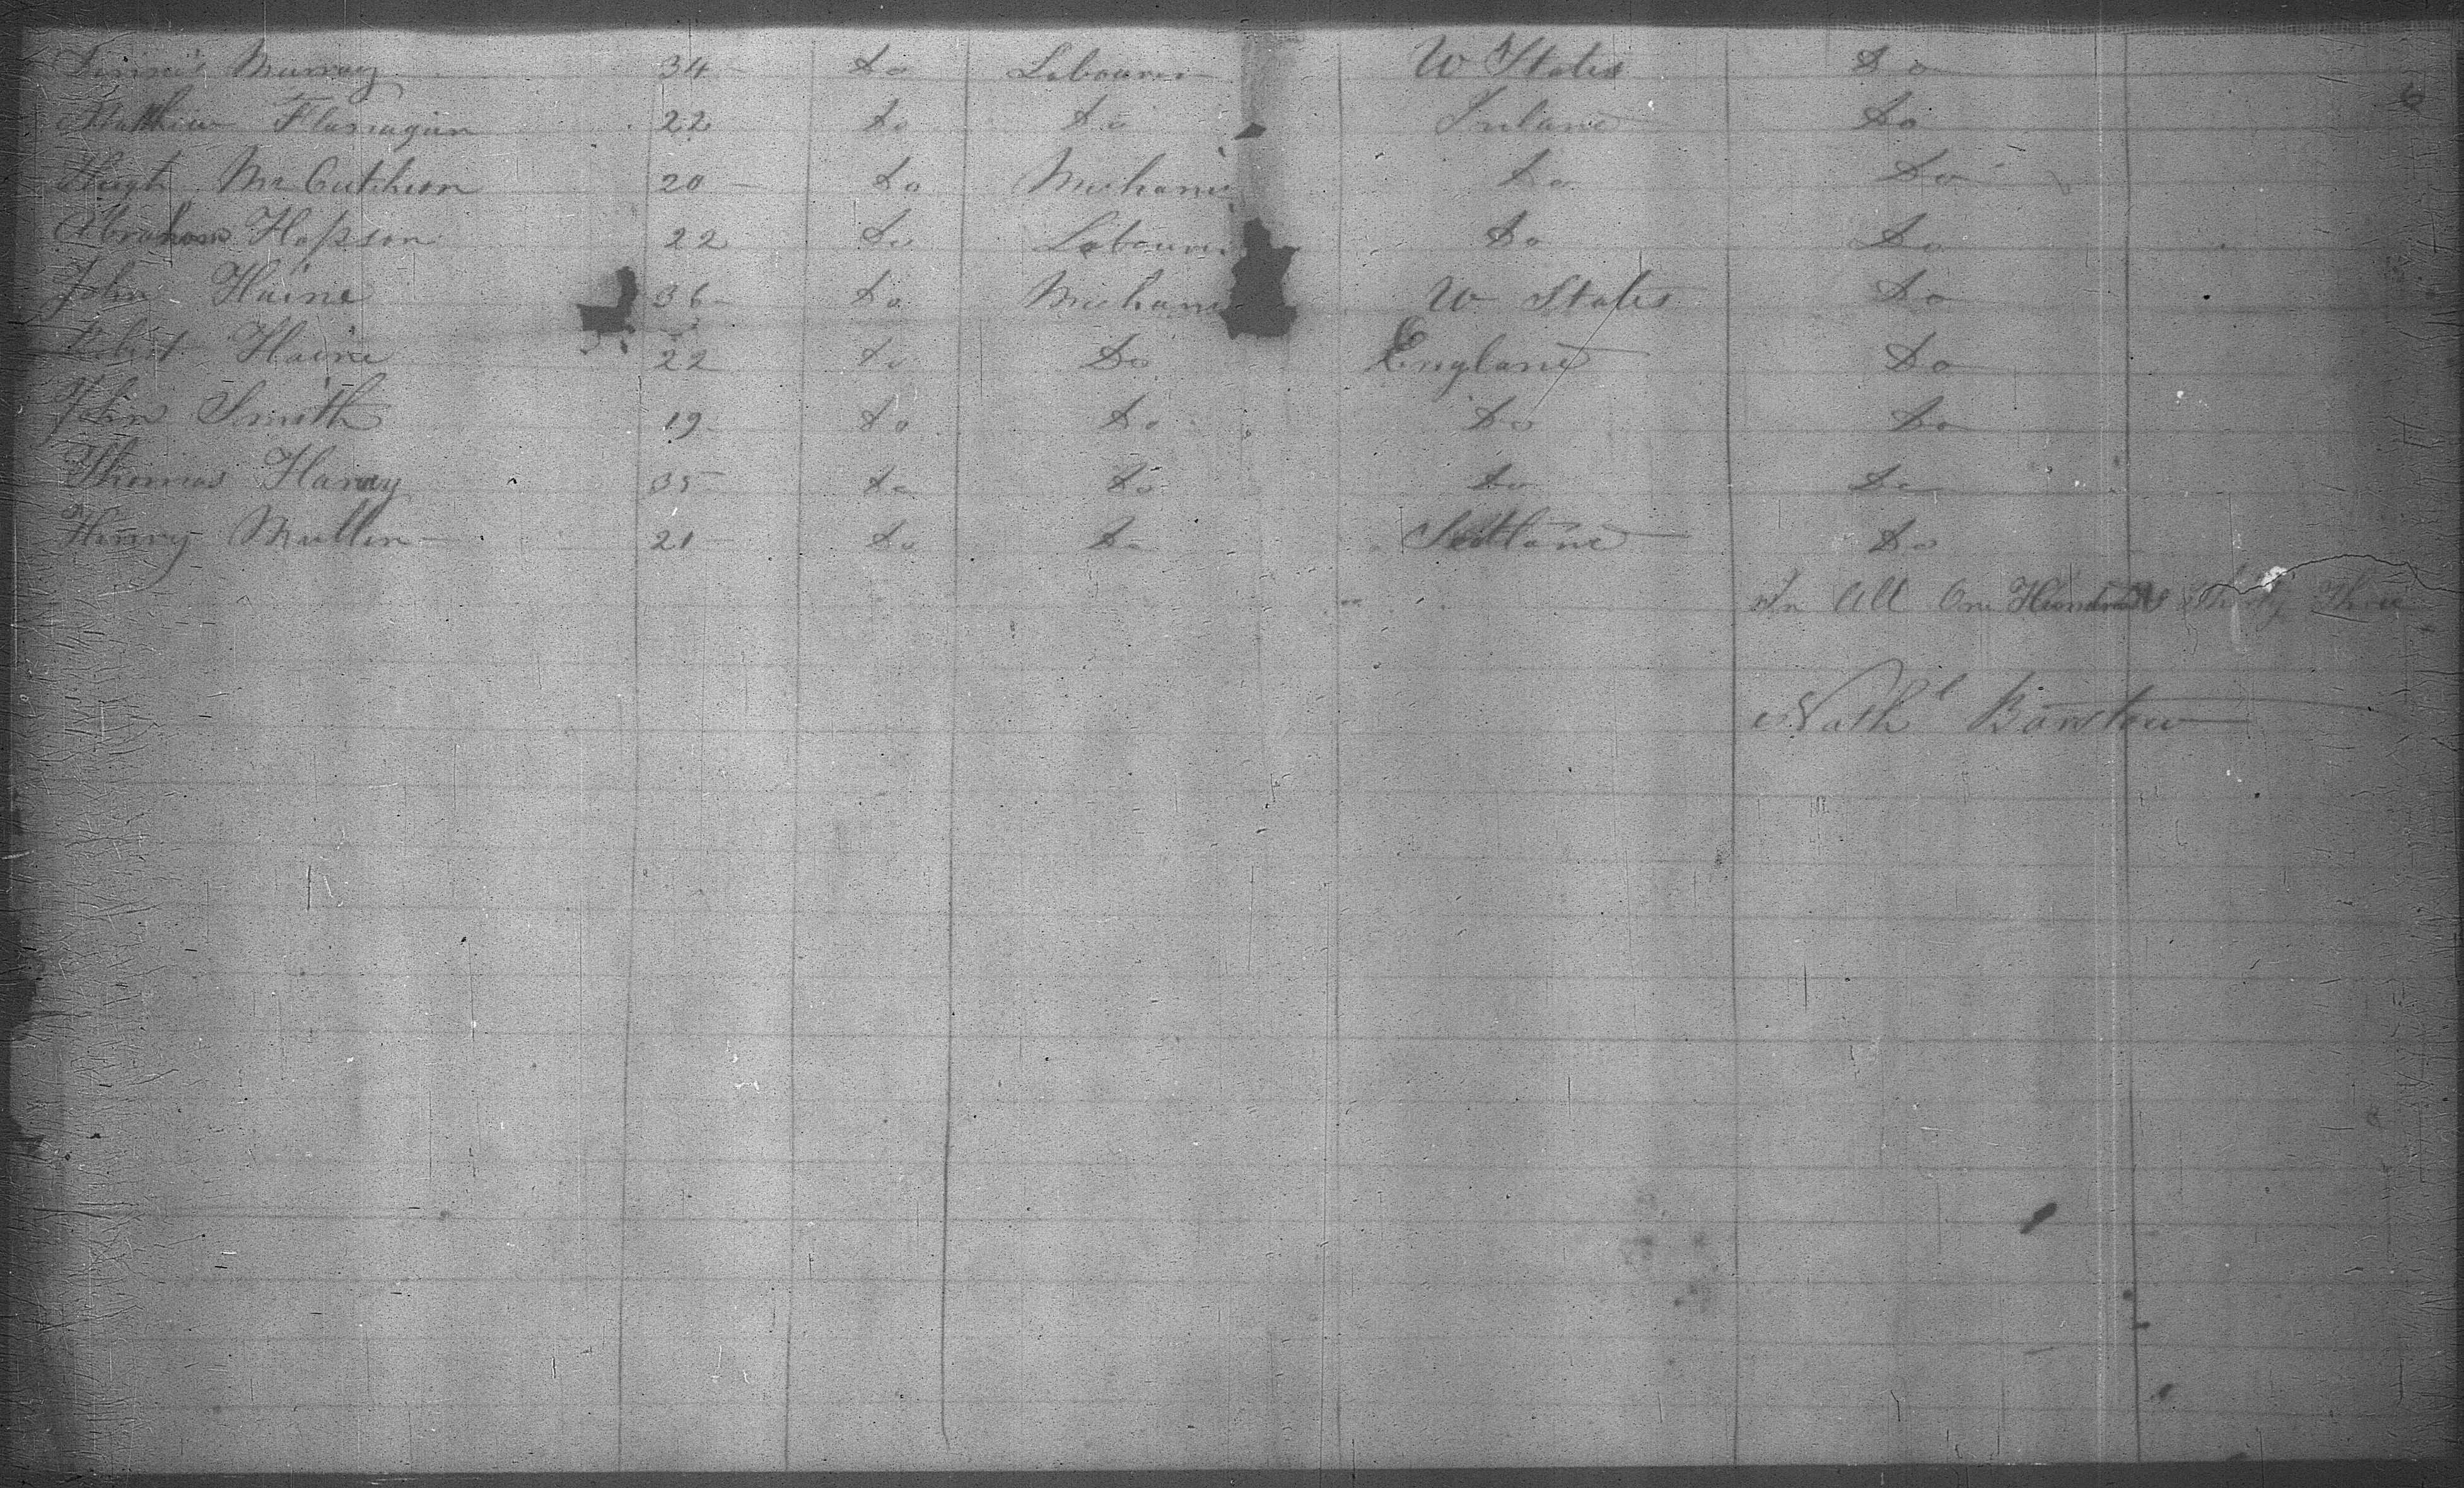 Dennis Murray 34 Do Labourer U States Do
Matthew Flannagan 22 Do Do Ireland Do
Hugh McCutchion 20 Do Mechanic Do Do
Abraham Hopson 22 Do Labourer Do Do
John Haine 36 Do Mechanic U States Do
Robert Haine 22 Do Do England Do
John Smith 19 Do Do Do Do
Thomas Harvey 35 Do Do Do Do
Henry Mullen 21 Do Do Scotland Do
In All One Hundred & Thirty Three
Nathl Barstow